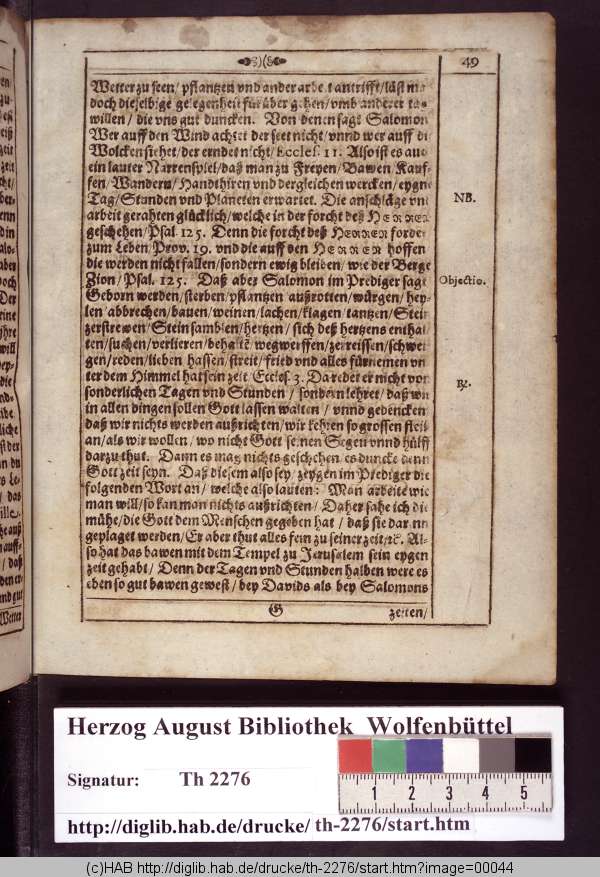 49
Wetter zu seen/ pflantzen vnd ander arbeit antrifft/ läst ma
doch dieselbige gelegenheit für über gehen/ vmb anderer tag
willen/ die vns gut duncken. Von denen sagt Salomon
Wer auff den Wind achtet der seet nicht/ vnnd wer auff di
Wolcken siehet/ der erndet nicht/ Eccles. 11. Also ist es auc
ein lauter Narrenspiel/ daß man zu Freyen/ Bawen Kauf-
fen/ Wandern/ Handthiren vnd dergleichen wercken/ eygne
Tag/ Stunden vnd Planeten erwartet. Die anschläge vnd
NB.
arbeit gerahten glücklich/ welche in der forcht deß HERREN
geschehen/ Psal. 125. Denn die forcht deß HERREN forder
zum Leben/ Prov. 19. vnd die auff den HERREN hoffen
die werden nicht fallen/ sondern ewig bleiben/ wie der Berge
Zion/ Psal. 125. Daß aber Salomon im Prediger sagt
Objectio.
Geborn werden/ sterben/ pflantzen außrotten/ würgen/ hey-
len abbrechen/ bauen/ weinen/ lachen/ klagen/ tantzen/ Stein
zerstrewen/ Stein samblen/ hertzen/ sich deß hertzens enthal
ten/ suchen/ verlieren/ behaltē wegwerffen/ zerreissen/ schwei
gen/ reden/ lieben hassen/ streit/ fried vnd alles fürnemen vn
ter dem Himmel hat sein zeit/ Eccles. 3. Da redet er nicht von
sonderlichen Tagen vnd Stunden/ sondern lehret/ daß wir
℞.
in allen dingen sollen Gott lassen walten/ vnnd gedencken
daß wir nichts werden außrichten/ wir kehren so grossen fleiß
an/ als wir wollen/ wo nicht Gott seinen Segen vnnd hülff
darzu thut. Dann es mag nichts geschehen/ es duncke denn
Gott zeit seyn. Daß diesem also sey/ zeygen im Prediger die
folgenden Wort an/ welche also lauten: Man arbeite wie
man will/ so kan man nichts außrichten/ Daher sahe ich die
mühe/ die Gott dem Menschen gegeben hat/ daß sie dar inn
geplaget werden/ Er aber thut alles fein zu seiner zeit/ ꝛc. Al-
so hat das bawen mit dem Tempel zu Jerusalem sein eygen
zeit gehabt/ Denn der Tagen vnd Stunden halben were es
eben so gut bawen gewest/ bey Davids als bey Salomons
G
zeiten/
Wetter
Herzog August Bibliothek Wolfenbüttel
Signatur: Th 2276
http://diglib.hab.de/drucke/ th-2276/start.htm
1 2 3 4 5
(c)HAB http://diglib.hab.de/drucke/th-2276/start.htm?image=00044